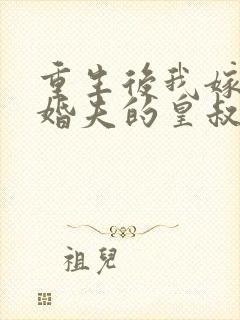 重生後我嫁
婚夫的皇叔
祖兒